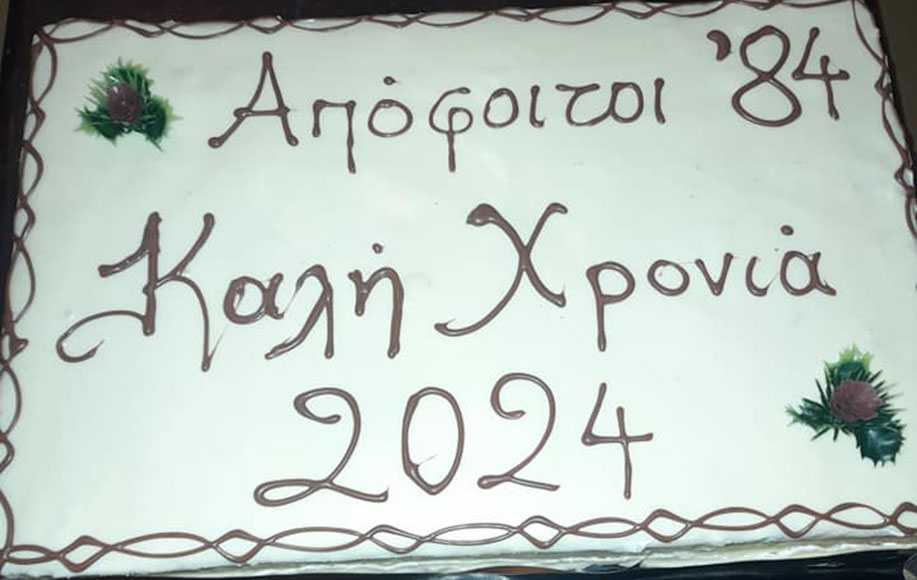 Απόφοιτοι '84
Καλή Χρονιά
2024